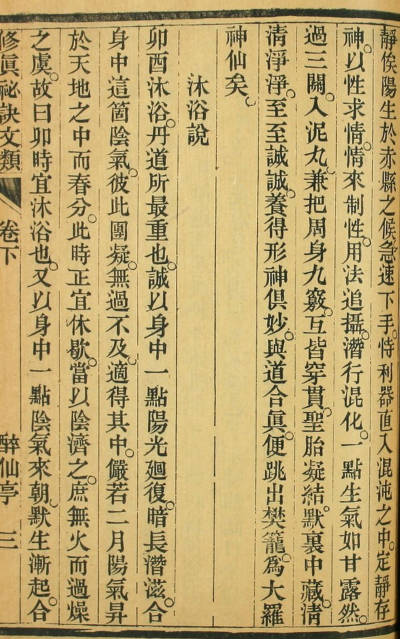 靜俟陽生於赤縣之候。急速下手。恃利器直入混沌之中。定靜存
神。以性求情。情來制性。用法追攝。潛行混化。一點生氣如甘露然。
過三關。入泥丸。兼把周身九竅。互皆穿貫。聖胎凝結。默裏中藏。清
清淨淨。至至誠誠。養得形神俱妙。與道合眞。便跳出樊籠。爲大羅
神仙矣。
沐浴說
卯酉沐浴。丹道所最重也。誠以身中一點陽光廻復。暗長潛滋。合
身中這箇陰氣。彼此團凝。無過不及。適得其中。儼若二月陽氣昇
於天地之中而春分。此時正宜休歇。當以陰濟之。庶無火而過燥
之虞。故曰卯時宜沐浴也。又以身中一點陰氣來朝。默生漸起。合
修眞祕訣文類 卷下 醉仙亭 三